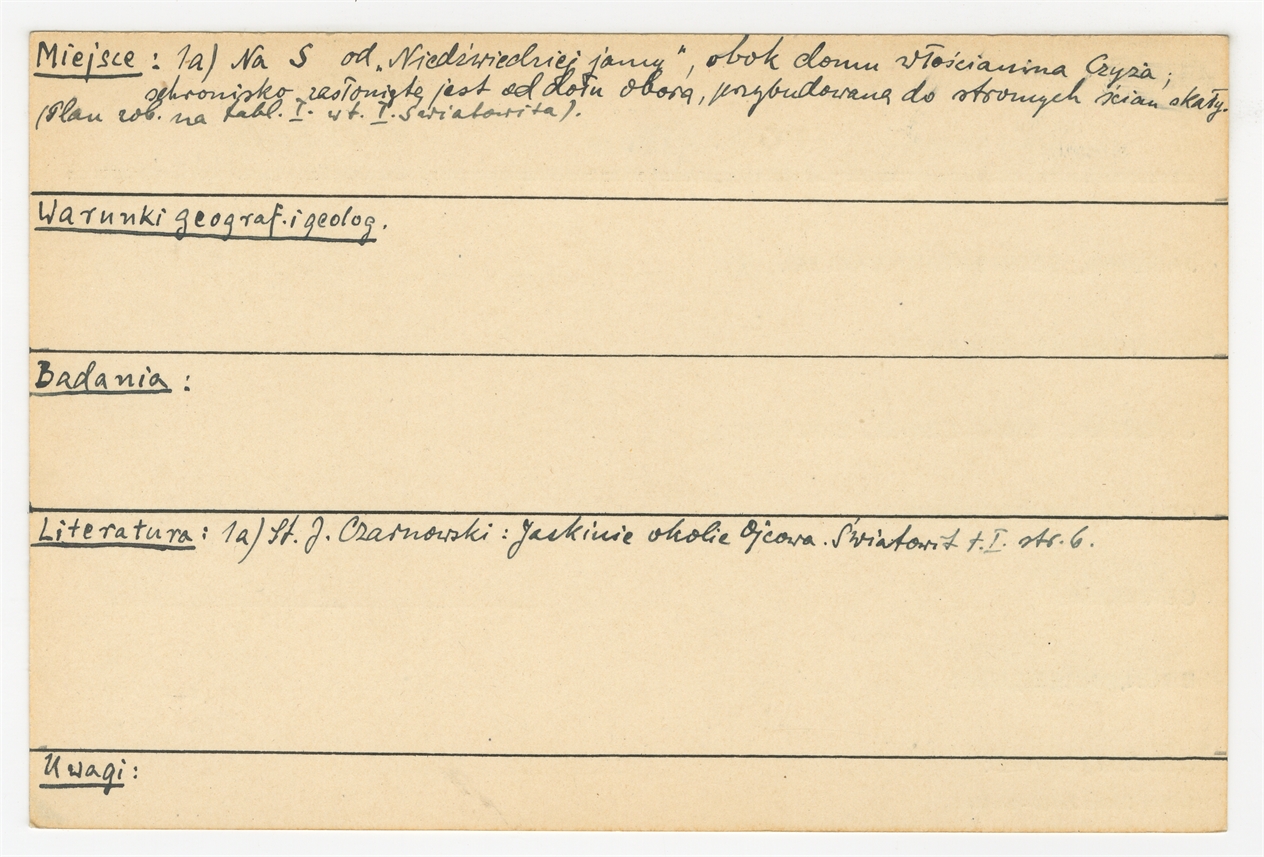 Miejsce : 1a) Na S od „Niedźwiedziej jamy", obok domu włościanina Czyża ;
schronisko zasłonięte jest od dołu oborą, przybudowaną do stromych ścian skały.
(Plan zob. na tabl. I. w t. I. Światowita).
Warunki geograf. i geolog.
Badania :
Literatura : 1a) St. J. Czarnowski : Jaskinie okolic Ojcowa. Światowit t. I. str. 6.
Uwagi :